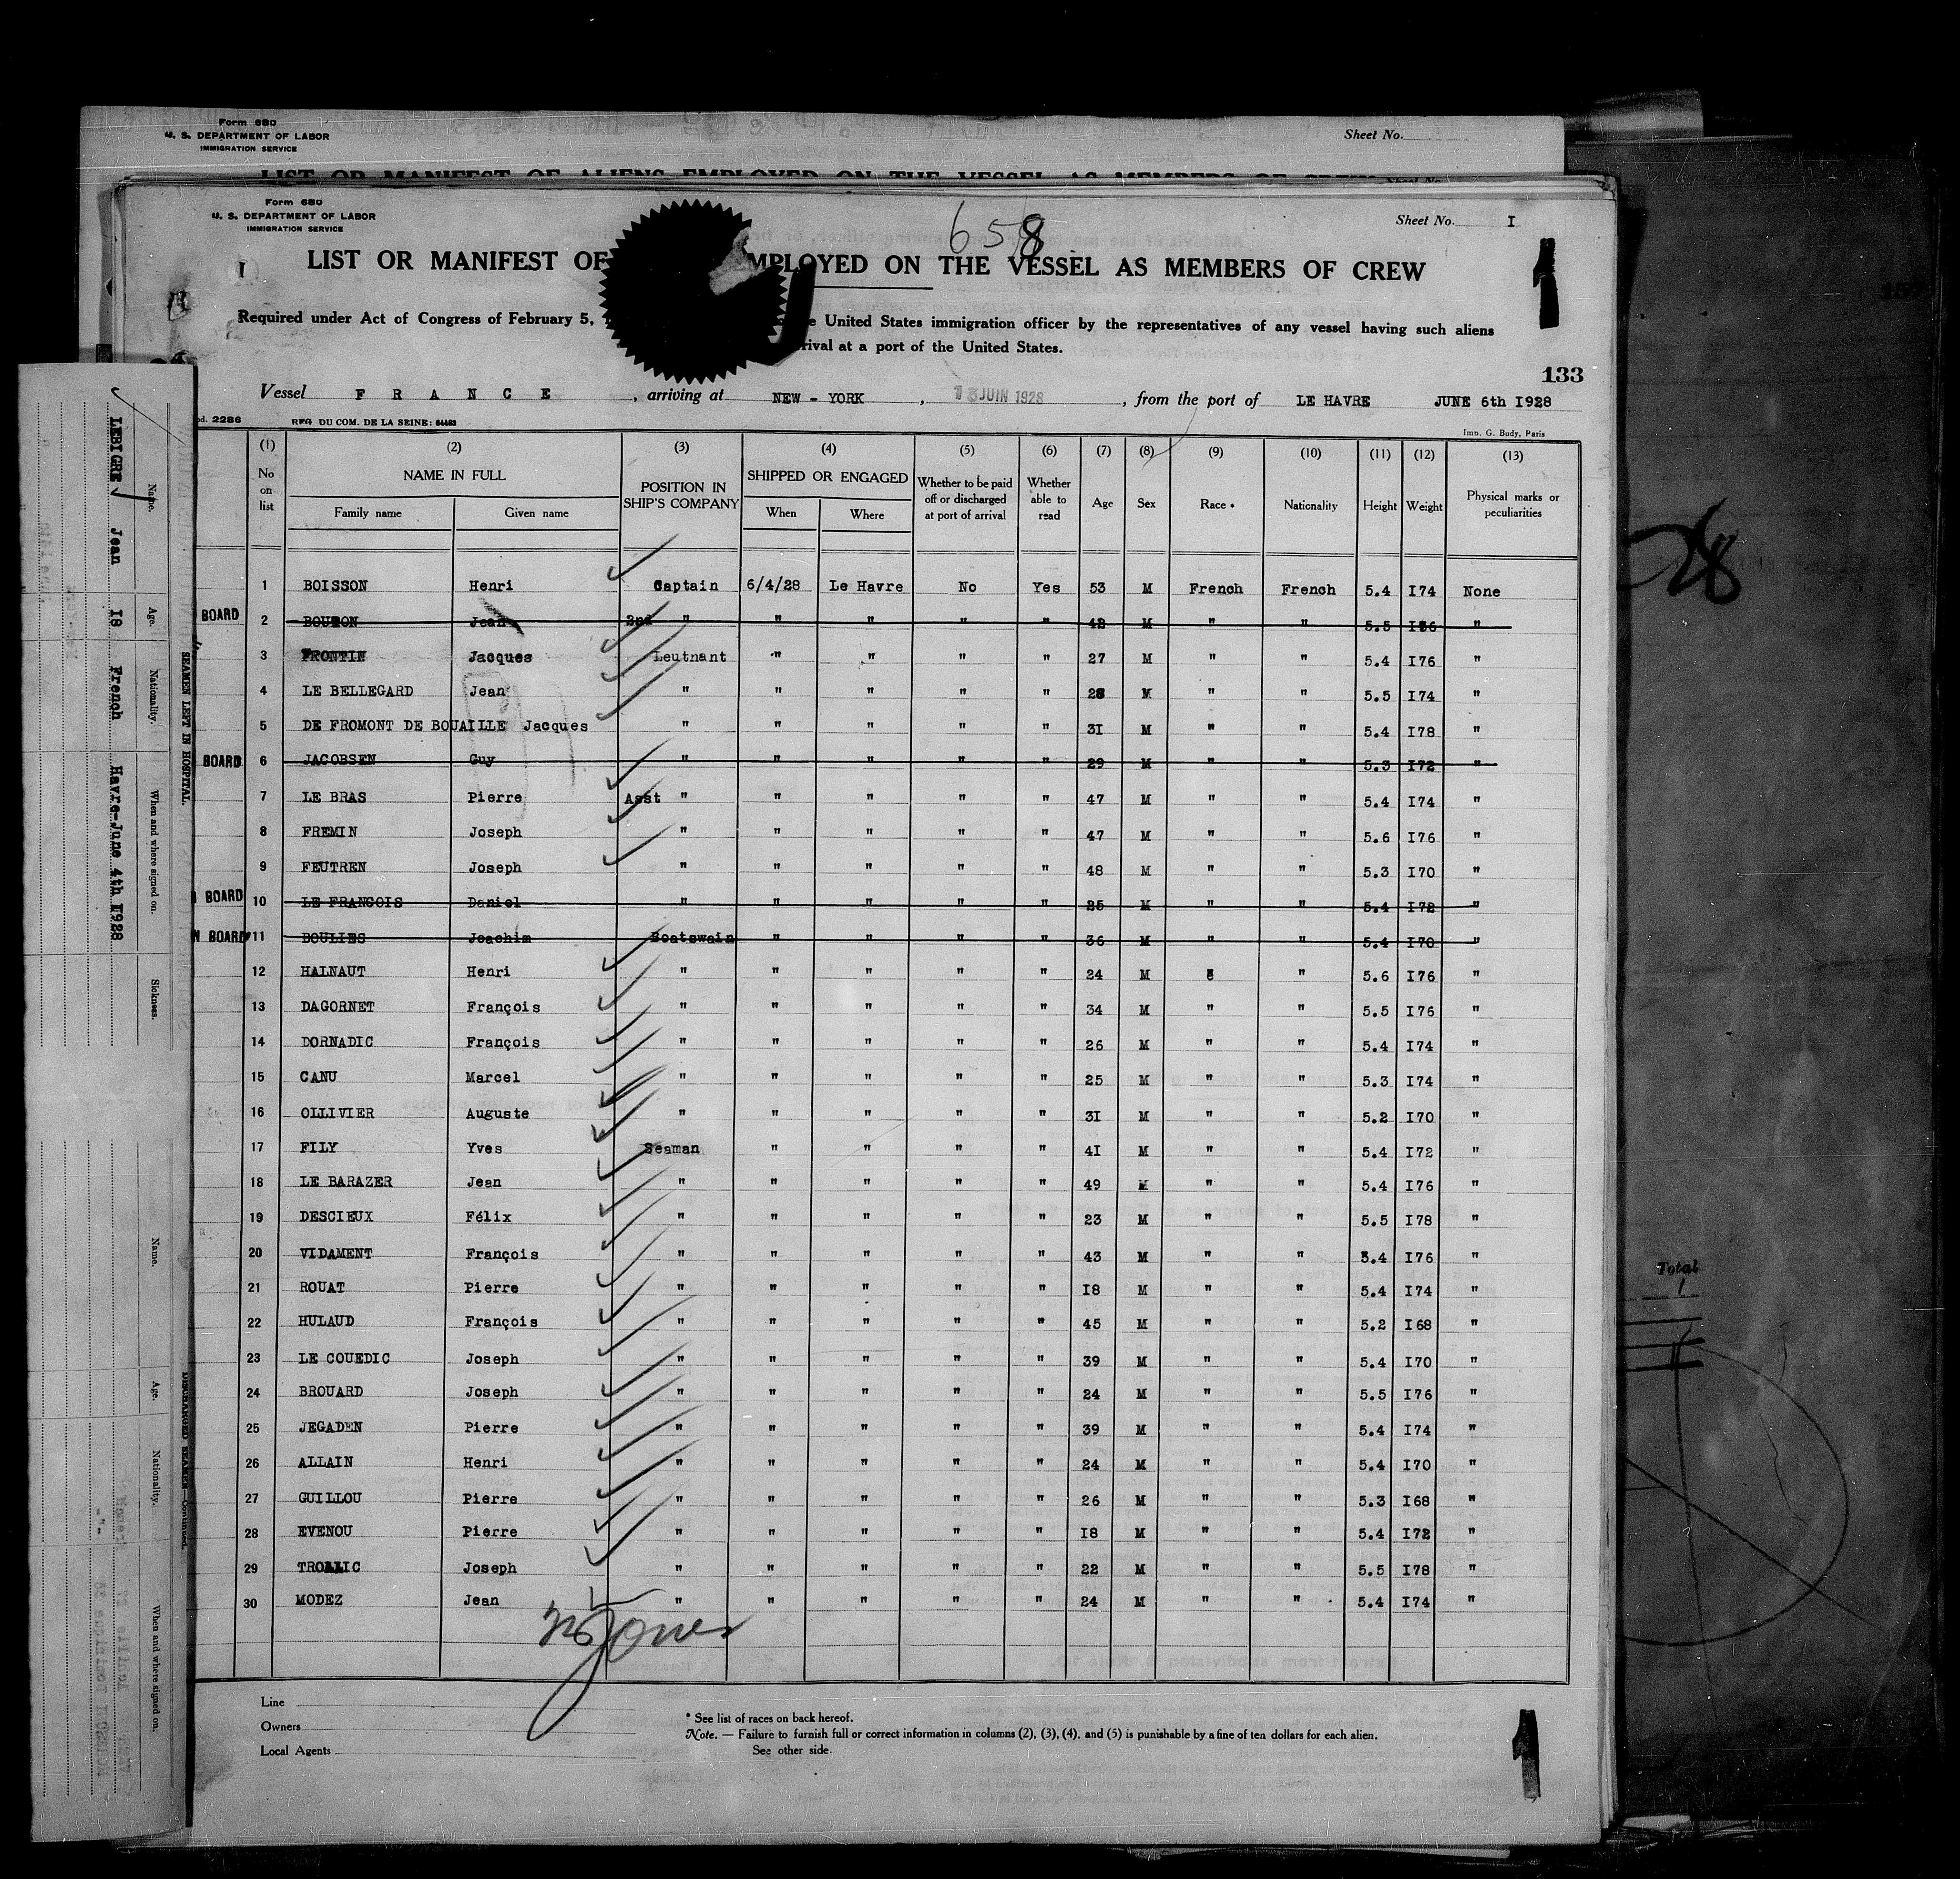 Form 680
U. S. DEPARTMENT OF LABOR
IMMIGRATION SERVICE
Sheet No.
LIST OR MANIFEST OF ALIENS EMPLOYED ON THE VESSEL AS MEMBERS OF CREW
Form 680
U. S. DEPARTMENT OF LABOR
IMMIGRATION SERVICE
658
Sheet No. I
I
LIST OR MANIFEST OF MPLOYED ON THE VESSEL AS MEMBERS OF CREW
1
Required under Act of Congress of February 5, United States immigration officer by the representatives of any vessel having such aliens
rival at a port of the United States.
133
Vessel F R A N C E , arriving at NEW - YORK , 13 JUIN 1928 , from the port of LE HAVRE JUNE 6th I928
od. 2286 REG. DU COM. DE LA SEINE: 64463 Imp. G. Budy, Paris
(1) (2) (3) (4) (5) (6) (7) (8) (9) (10) (11) (12) (13)
No on list NAME IN FULL Family name Given name POSITION IN SHIP'S COMPANY SHIPPED OR ENGAGED When Where Whether to be paid off or discharged at port of arrival Whether able to read Age Sex Race * Nationality Height Weight Physical marks or peculiarities
1 BOISSON Henri Captain 6/4/28 Le Havre No Yes 53 M French French 5.4 I74 None
BOARD 2 BOURON Jean 2nd " " " " " 42 M " " 5.5 "
3 FRONTIN Jacques Leutnant " " " " 27 M " " 5.4 I76 "
4 LE BELLEGARD Jean " " " " " 28 M " " 5.5 I74 "
5 DE FROMONT DE BOUAILLE Jacques " " " " " 3I M " " 5.4 I78 "
BOARD 6 JACOBSEN Guy " " " " " 29 M " " 5.3 I72 "
7 LE BRAS Pierre Asst " " " " " 47 M " " 5.4 I74 "
8 FREMIN Joseph " " " " " 47 M " " 5.6 I76 "
9 FEUTREN Joseph " " " " " 48 M " " 5.3 I70 "
BOARD 10 LE FRANCOIS Daniel " " " " " 25 M " " 5.4 I72 "
N BOARD 11 BOULIES Joachim Boatswain " " " " 36 M " " 5.4 I70 "
12 HALNAUT Henri " " " " " 24 M " " 5.6 I76 "
13 DAGORNET François " " " " " 34 M " " 5.5 I76 "
14 DORNADIC François " " " " " 26 M " " 5.4 I74 "
15 CANU Marcel " " " " " 25 M " " 5.3 I74 "
16 OLLIVIER Auguste " " " " " 3I M " " 5.2 I70 "
17 FILY Yves Seaman " " " " 4I M " " 5.4 I72 "
18 LE BARAZER Jean " " " " " 49 M " " 5.4 I76 "
19 DESCIEUX Félix " " " " " 23 M " " 5.5 I78 "
20 VIDAMENT François " " " " " 43 M " " 5.4 I76 "
21 ROUAT Pierre " " " " " I8 M " " 5.4 I74 "
22 HULAUD François " " " " " 45 M " " 5.2 I68 "
23 LE COUEDIC Joseph " " " " " 39 M " " 5.4 I70 "
24 BROUARD Joseph " " " " " 24 M " " 5.5 I76 "
25 JEGADEN Pierre " " " " " 39 M " " 5.4 I74 "
26 ALLAIN Henri " " " " " 24 M " " 5.4 I70 "
27 GUILLOU Pierre " " " " " 26 M " " 5.3 I68 "
28 EVENOU Pierre " " " " " I8 M " " 5.4 I72 "
29 Joseph " " " " " 22 M " " 5.5 I78 "
30 MODEZ Jean " " " " " 24 M " " 5.4 I74 "
Line
Owners
Local Agents
* See list of races on back hereof.
Note. — Failure to furnish full or correct information in columns (2), (3), (4), and (5) is punishable by a fine of ten dollars for each alien.
See other side.
1
SEAMEN LEFT IN HOSPITAL.
Name. Age. Nationality. When and where signed on. Sickness.
LEBIGRE Jean I8 French Havre-June 4th I928
DISCHARGED SEAMEN—Continued.
Name. Age. Nationality. When and where signed on.
Total